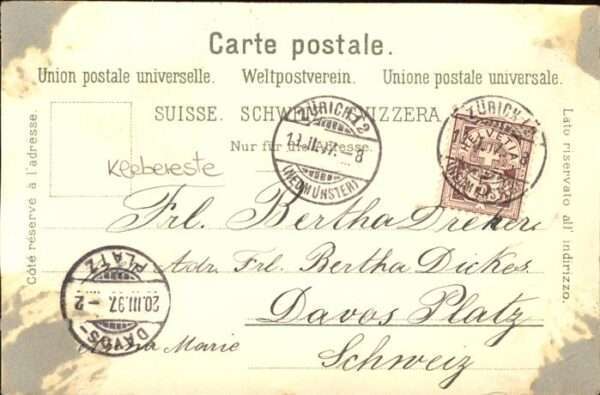 Carte postale.
Union postale universelle. Weltpostverein. Unione postale universale.
SUISSE. SCHWEIZ. SVIZZERA.
Nur für die Adresse.
Côté réservé à l'adresse.
Lato riservato all' indirizzo.
Klebereste
ZÜRICH 12
III.97. 8
(NEUMÜNSTER)
ZÜRICH
HELVETIA
Frl. Bertha
Adr. Frl. Bertha Dickes
Davos Platz
Schweiz
Marie
PLATZ
20.III.97. 2
DAVOS-